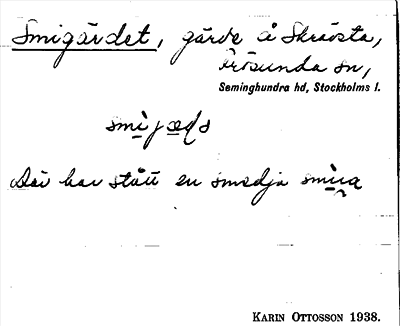 Smigärdet, gärde å Skråvsta,
Orösunda sn,
Seminghundra hd, Stockholms l.
Där har stått en smedja
KARIN OTTOSSON 1938.